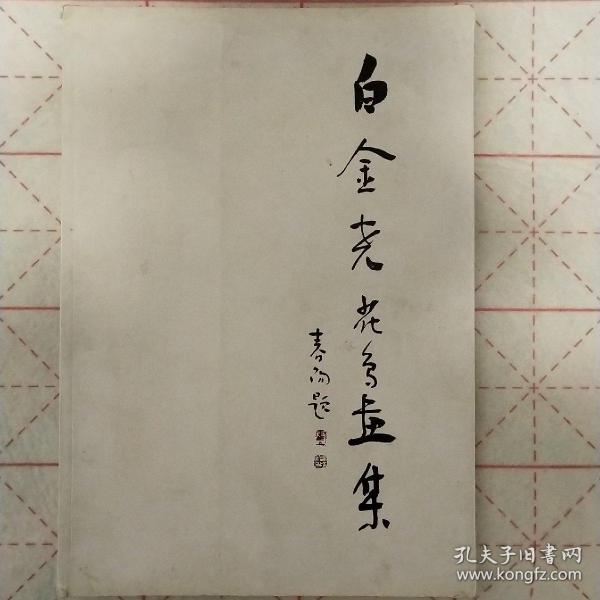 白金尧花鸟画集
春阳题
孔夫子旧书网
www.kongfz.com